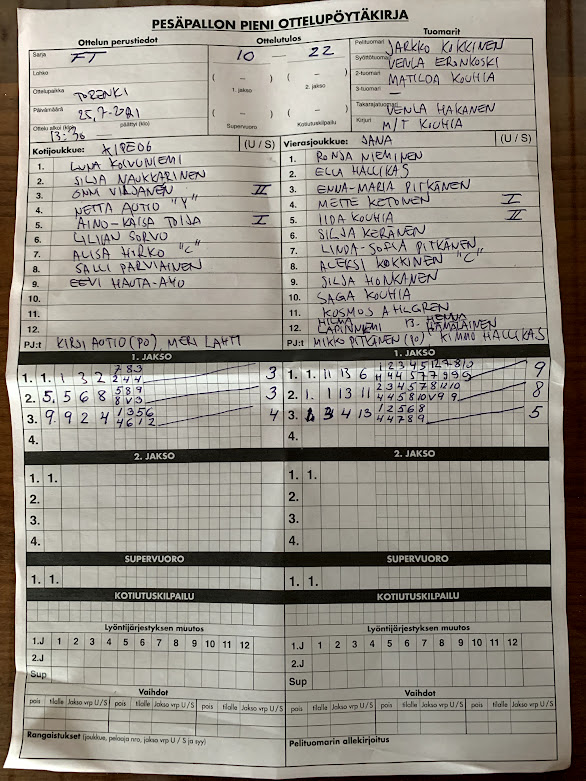 PESÄPALLON PIENI OTTELUPÖYTÄKIRJA
Ottelun perustiedot
Sarja FT
Lohko
Ottelupaikka TORENKI
Päivämäärä 25,7-2021
Ottelu alkoi (klo) 13:30 päättyi (klo)
Ottelutulos
10 — 22
( — ) ( — )
1. jakso 2. jakso
( — ) ( — )
Supervuoro Kotiutuskilpailu
Tuomarit
Pelituomari JARKKO KOKKINEN
Syöttötuomari VENLA ERONKOSKI
2-tuomari MATILDA KOUHIA
3-tuomari —
Takarajatuomari VENLA HAKANEN
Kirjuri M/T KOUHIA
Kotijoukkue: (U / S)
1. LUNA KOIVUNIEMI
2. SILJA NAUKKARINEN
3. ONNI VIRJANEN II
4. NETTA AUTIO "V"
5. AINO-KAISA TOIJA I
6. LILJAN SORVO
7. ALISA HIRKO "C"
8. SALLI PARVIAINEN
9. EEVI HAUTA-AHO
10.
11.
12.
PJ:t KIRSI AUTIO (PO), MERI LAHTI
Vierasjoukkue: JANA (U / S)
1. RONJA NIEMINEN
2. ELLI HALLIKAS
3. ENNA-MARIA PITKÄNEN
4. METTE KETONEN I
5. IIDA KOUHIA II
6. SILJA KERÄNEN
7. LINDA-SOFIA PITKÄNEN
8. ALEKSI KOKKINEN "C"
9. SILJA HONKANEN
10. SAGA KOUHIA
11. KOSMOS AHLGREN
12. HILMA LAPINNIEMI 13. HENNA HÄMÄLÄINEN
PJ:t MIKKO PITKÄNEN (PO) KIMMO HALLIKAS
1. JAKSO
1. 1. 1 3 2 7 8 3 3
2 4 4
2. 5. 5 6 8 5 8 9 3
8 V 3
3. 9. 9 2 4 1 3 5 6 4
4 6 1 2
4.
1. JAKSO
1. 1. 11 13 6 1 2 3 4 5 12 7 8 10 9
4 4 4 5 7 7 9 9 9
2. 1. 1 13 11 2 3 4 5 7 8 12 10 8
4 4 5 8 10 V 9 9
3. 3 4 13 1 2 5 6 8 5
4 4 7 8 9
4.
2. JAKSO
1. 1.
2.
3.
4.
2. JAKSO
1. 1.
2.
3.
4.
SUPERVUORO
1. 1.
SUPERVUORO
1. 1.
KOTIUTUSKILPAILU
KOTIUTUSKILPAILU
Lyöntijärjestyksen muutos
1.J 1 2 3 4 5 6 7 8 9 10 11 12
2.J
Sup
Lyöntijärjestyksen muutos
1.J 1 2 3 4 5 6 7 8 9 10 11 12
2.J
Sup
Vaihdot
pois tilalle Jakso vrp U / S pois tilalle Jakso vrp U / S pois tilalle Jakso vrp U / S
Vaihdot
pois tilalle Jakso vrp U / S pois tilalle Jakso vrp U / S pois tilalle Jakso vrp U / S
Rangaistukset (joukkue, pelaaja nro, jakso vrp U / S ja syy)
Pelituomarin allekirjoitus